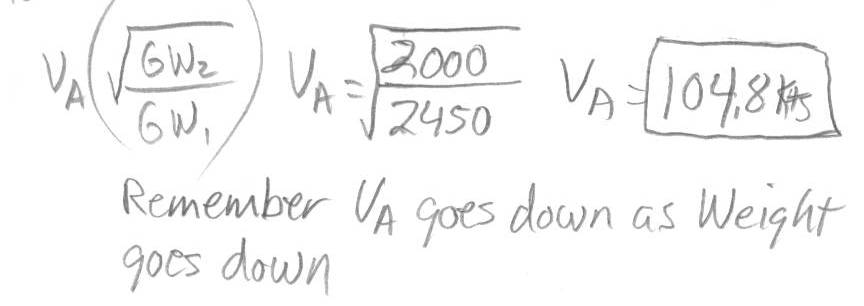 V_A (√(GW₂/GW₁)) V_A = √(2000/2450) V_A = 104.8 kts
Remember V_A goes down as Weight
goes down